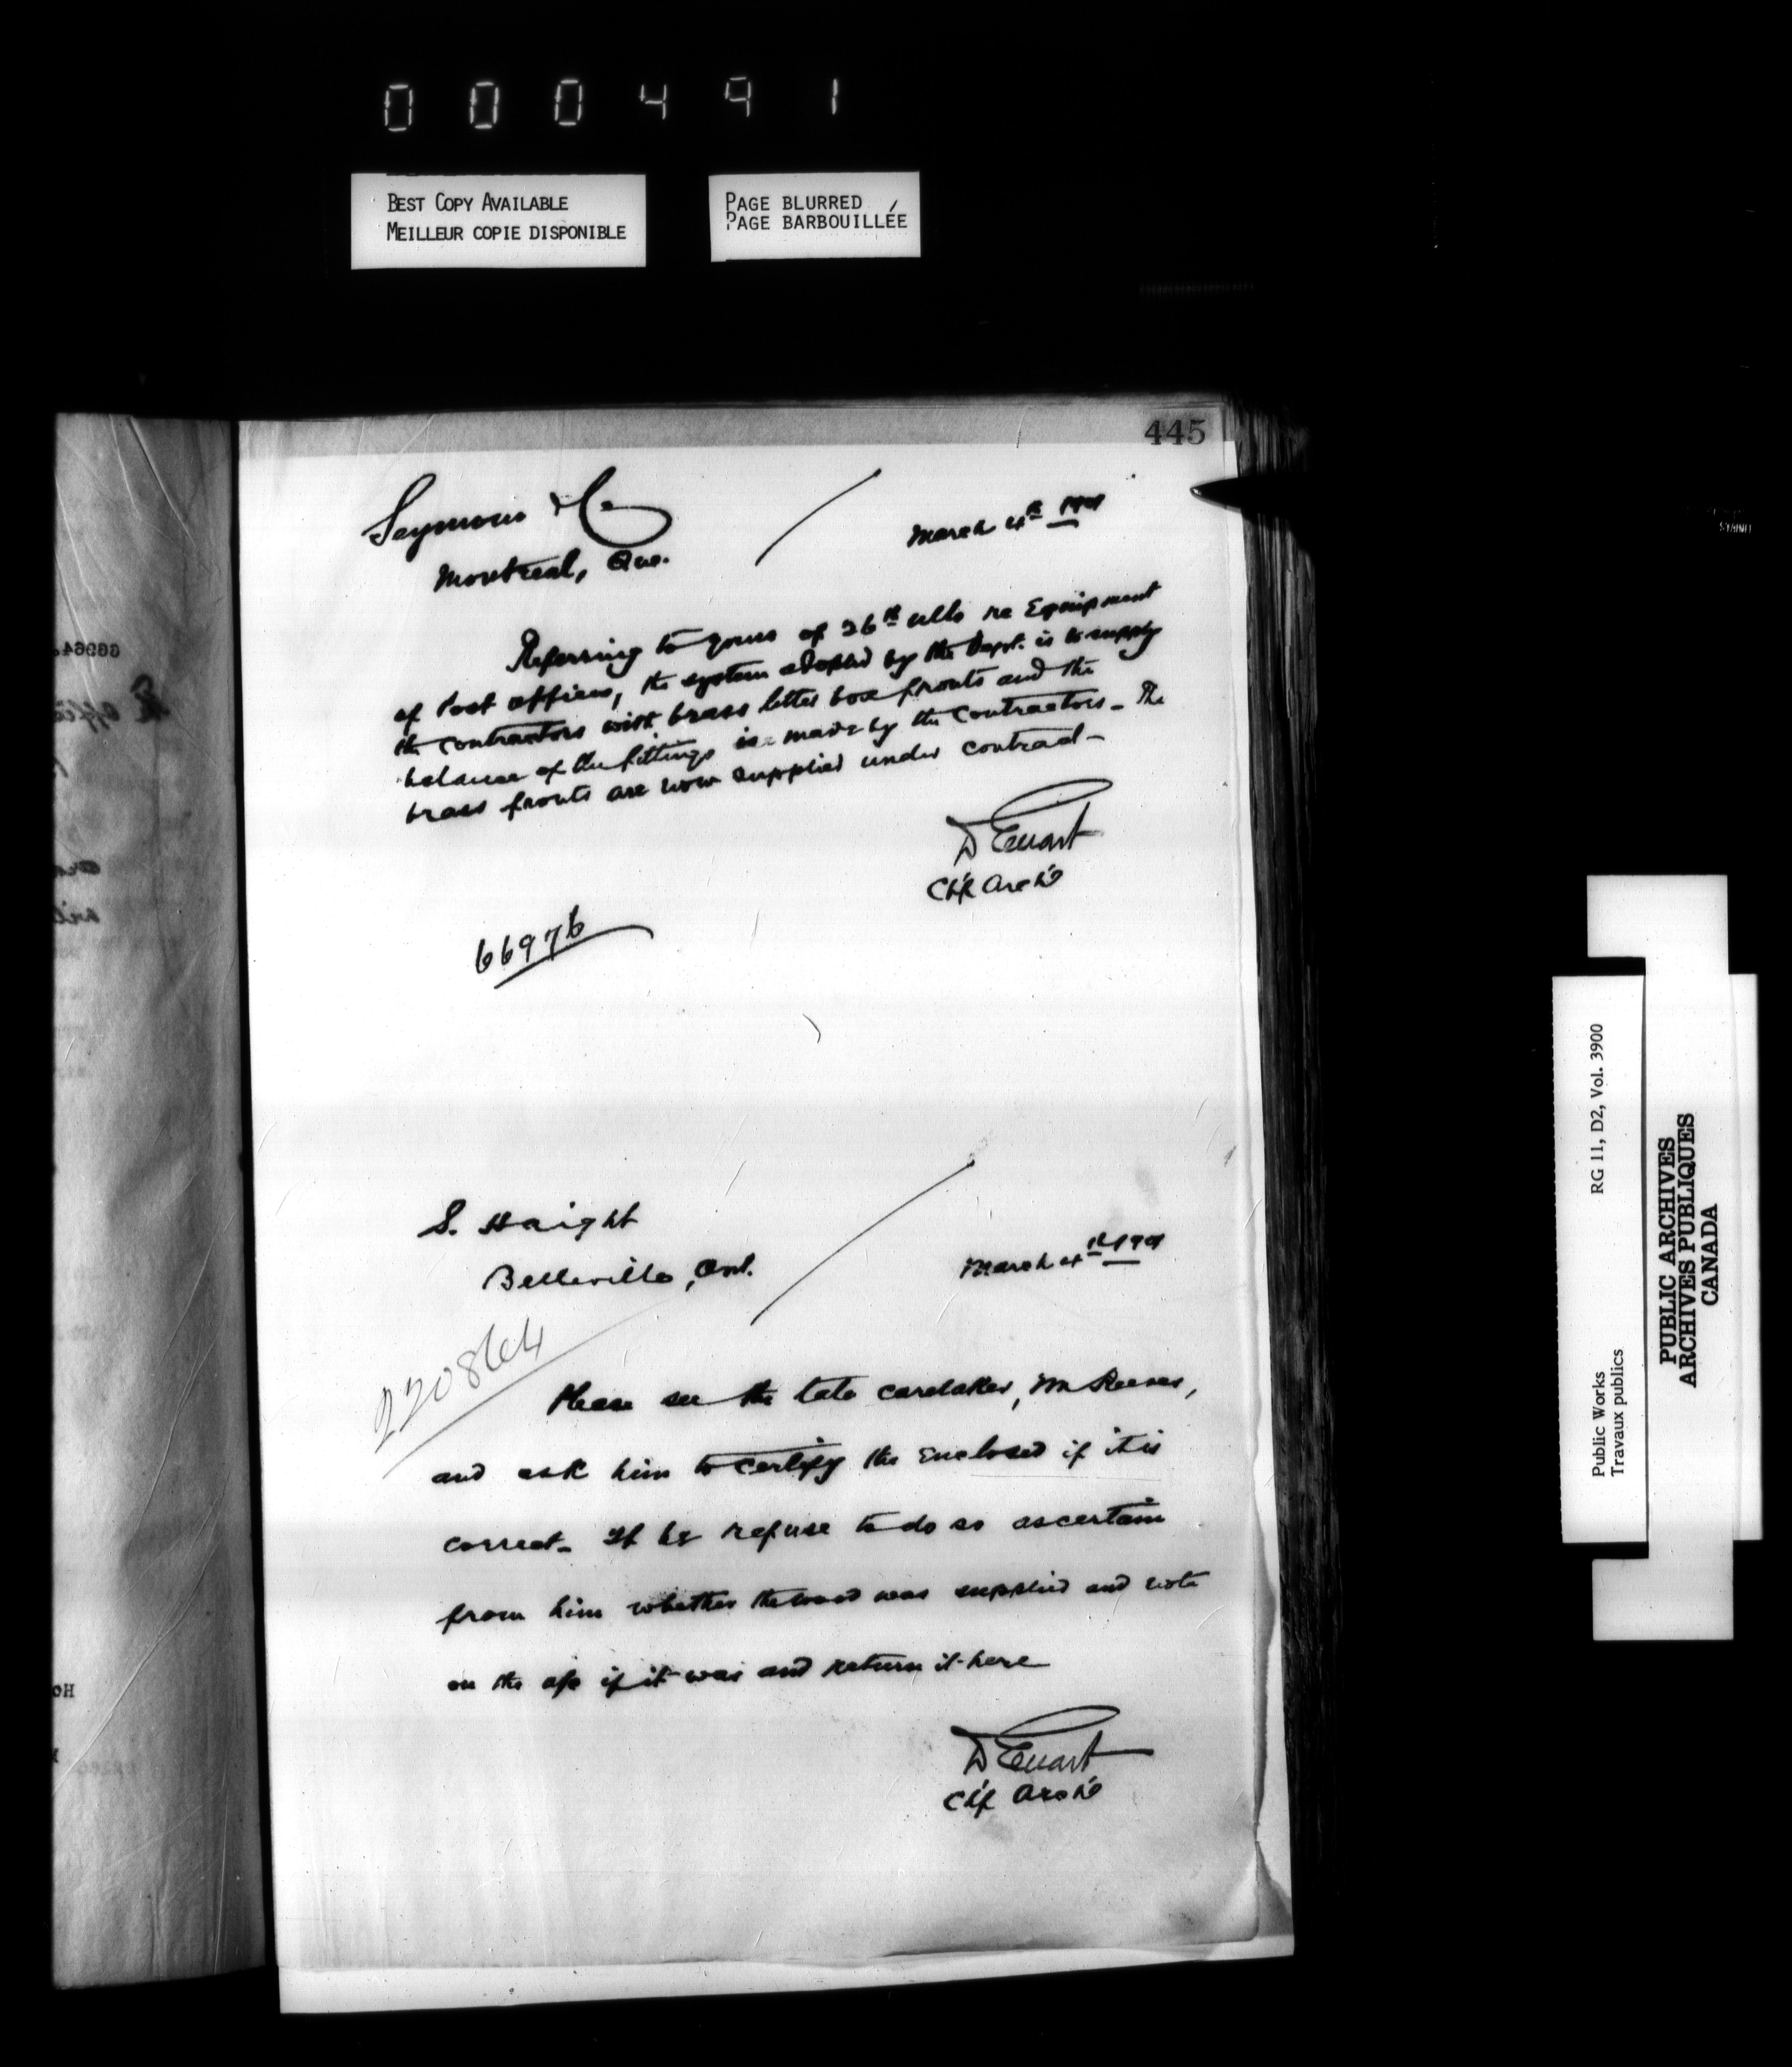 000491
BEST COPY AVAILABLE
MEILLEUR COPIE DISPONIBLE
PAGE BLURRED
PAGE BARBOUILLÉE
445
Seymour & Co
Montreal, Que.
March 4th 1901
Referring to yours of 26th ulto re Equipment
of Post offices, the system adopted by the Dept. is to supply
the contractors with brass letter box fronts and the
balance of the fittings is made by the contractors - The
brass fronts are now supplied under contract -
D Ewart
Chf Archt
66976
S. Haight
Belleville, Ont.
March 4th 1901
220864
Please see the late caretaker, Mr Reeves,
and ask him to certify the enclosed if it is
correct - If he refuse to do so ascertain
from him whether the wood was supplied and note
on the a/c if it was and return it here
D Ewart
Chf Archt
Public Works
Travaux publics
RG 11, D2, Vol. 3900
PUBLIC ARCHIVES
ARCHIVES PUBLIQUES
CANADA